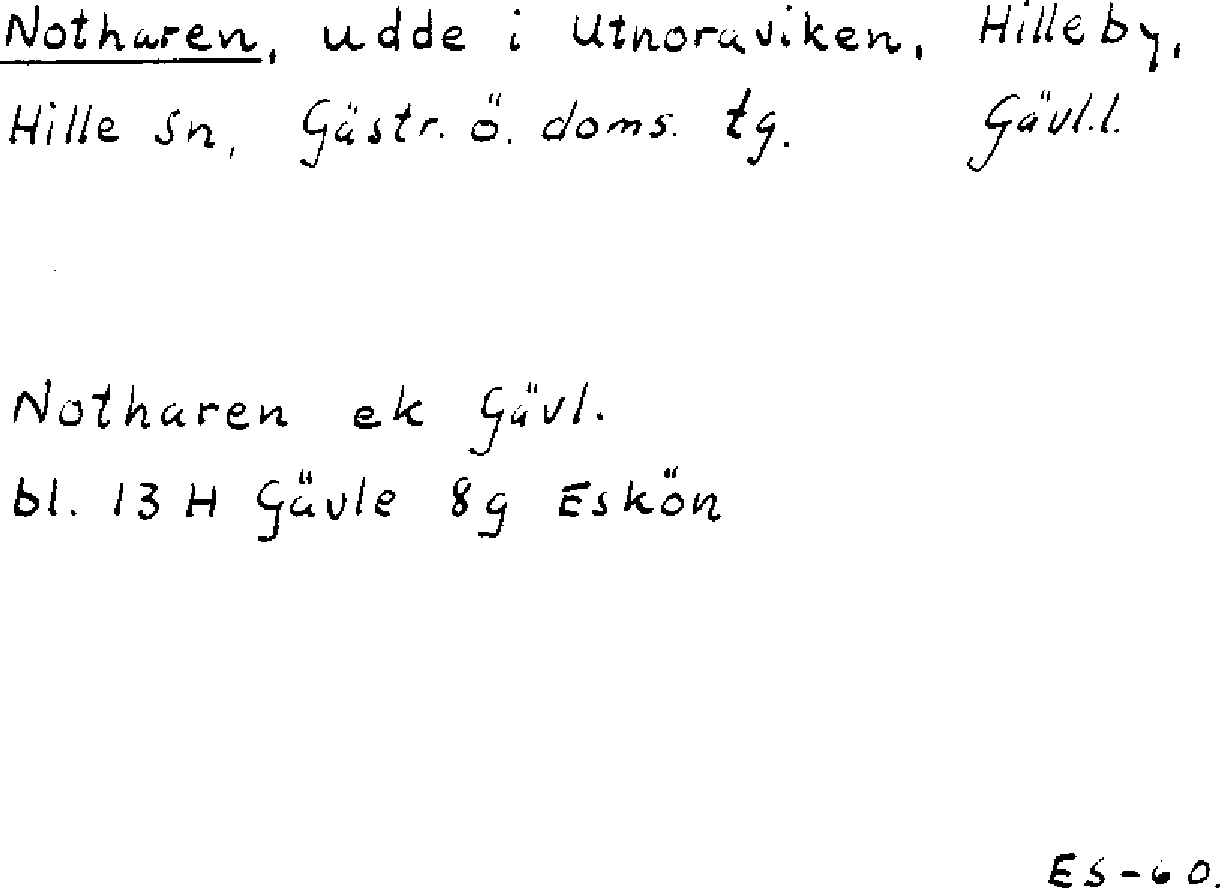 Notharen, udde i Utnoraviken, Hilleby,
Hille sn, Gästr. ö. doms. tg. Gävl.l.
Notharen ek Gävl.
bl. 13 H Gävle 8g Eskön
ES-60.